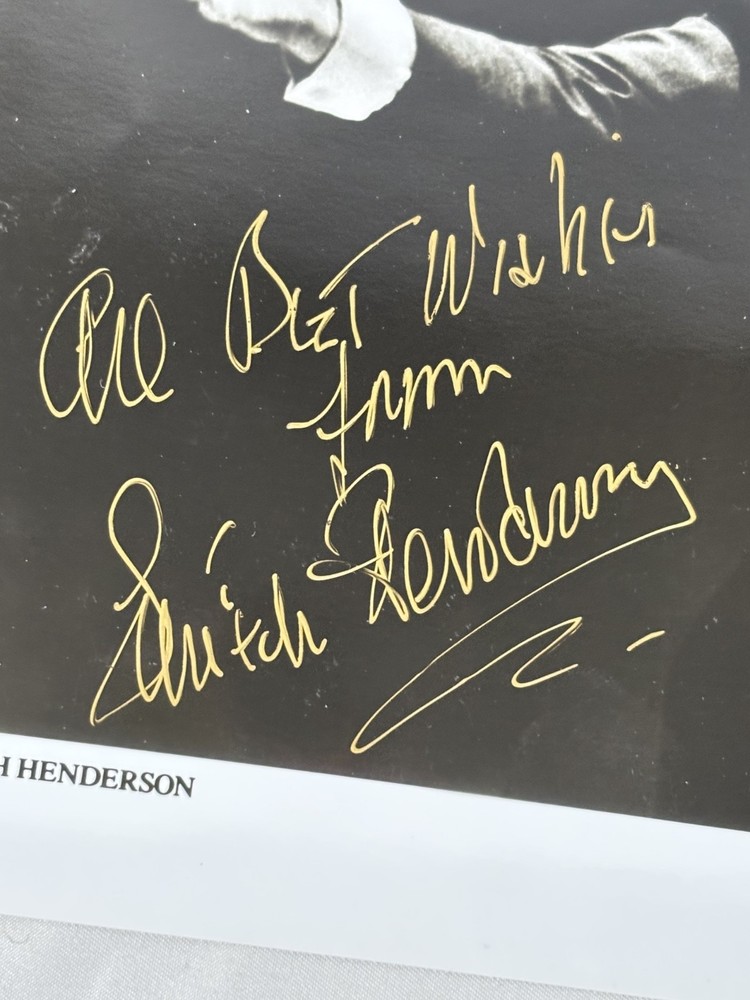 All Best Wishes
from
Skitch Henderson
H HENDERSON